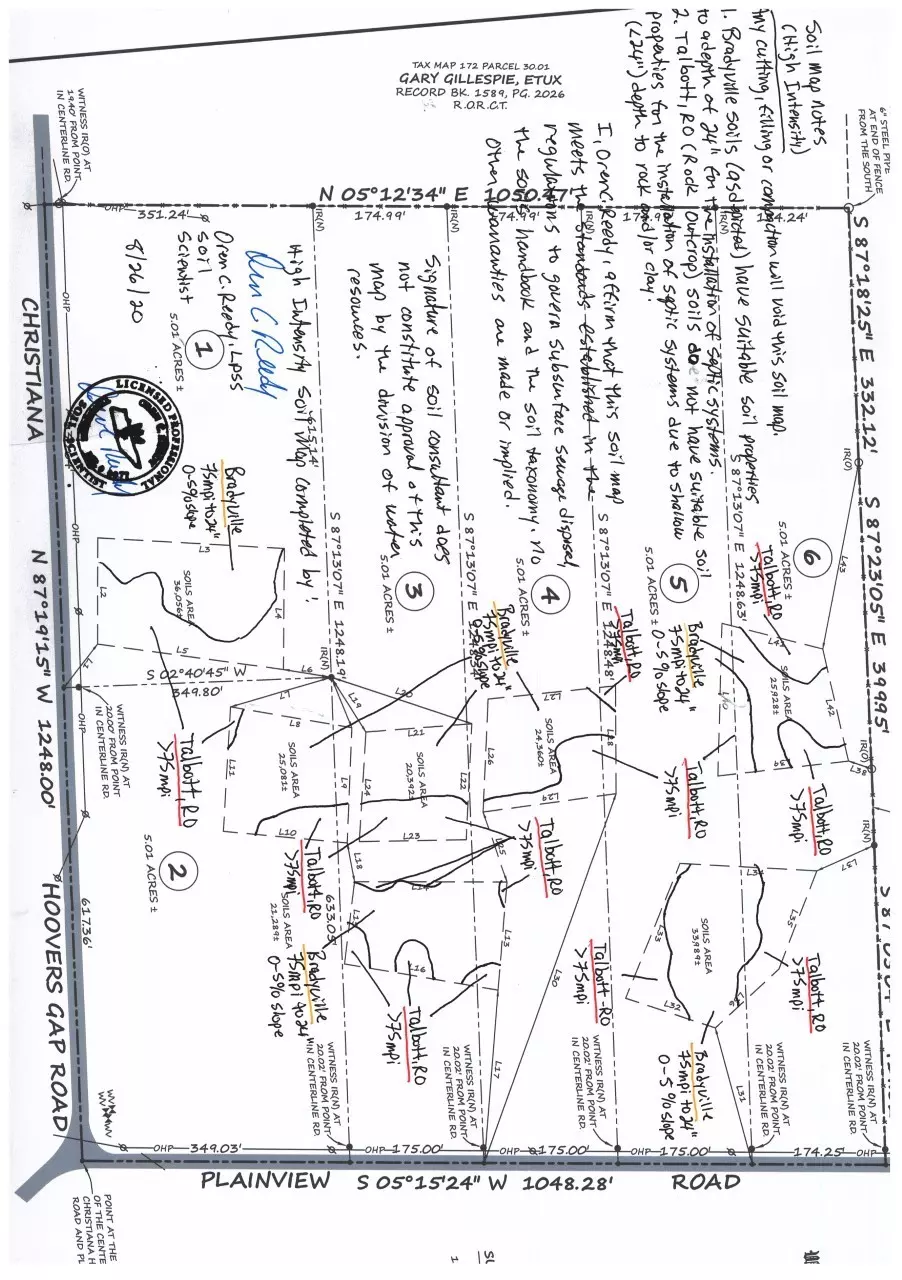 Soil Map Notes
(High Intensity)
Any cutting, filling or compaction will void this soil map.
1. Bradyville soils (as depicted) have suitable soil properties
to a depth of 24" for the installation of septic systems.
2. Talbott, RO (Rock Outcrop) soils do not have suitable soil
properties for the installation of septic systems due to shallow
(<24") depth to rock and/or clay.
I, Oren C. Reedy, affirm that this soil map
meets the standards established in the
regulations to govern subsurface sewage disposal,
the soils handbook and the soil taxonomy. No
other warranties are made or implied.
Signature of soil consultant does
not constitute approval of this
map by the division of water
resources.
High Intensity Soil Map completed by:
Oren C Reedy
Oren C. Reedy, LPSS
Soil
Scientist
8/26/20
TAX MAP 172 PARCEL 30.01
GARY GILLESPIE, ETUX
RECORD BK. 1589, PG. 2026
R.O.R.C.T.
6" STEEL PIPE
AT END OF FENCE
FROM THE SOUTH
WITNESS IR(O) AT
19.40' FROM POINT
IN CENTERLINE RD.
N 05°12'34" E 1050.47'
OHP
351.24'
IR(N)
174.99'
IR(N)
174.99'
IR(N)
IR(N)
S 87°18'25" E 332.12'
IR(O)
S 87°23'05" E 399.95'
IR(O)
IR(N)
1
5.01 ACRES ±
615.14'
3
5.01 ACRES ±
S 87°13'07" E 1248.19'
4
5.01 ACRES ±
S 87°13'07" E
5
5.01 ACRES ±
S 87°13'07" E 1248.48'
6
5.01 ACRES ±
S 87°13'07" E 1248.63'
2
5.01 ACRES ±
LICENSED PROFESSIONAL
SOIL SCIENTIST
Bradyville
75mpi to 24"
0-5% slope
SOILS AREA
36,056±
L2
L3
L4
L5
L6
S 02°40'45" W
349.80'
IR(N)
Talbott, RO
>75mpi
SOILS AREA
25,081±
L8
L9
L10
L11
SOILS AREA
20,392±
L19
L20
L21
L22
L23
L24
Bradyville
75mpi to 24"
0-5% slope
SOILS AREA
24,360±
L26
L27
L28
L29
Talbott, RO
>75mpi
Bradyville
75mpi to 24"
0-5% slope
Talbott, RO
>75mpi
SOILS AREA
25,928±
L42
L43
L38
L37
Talbott, RO
>75mpi
Talbott, RO
>75mpi
Talbott, RO
>75mpi
Talbott, RO
>75mpi
SOILS AREA
21,289±
Bradyville
75mpi to 24"
0-5% slope
633.05'
L13
L16
L17
L18
Talbott, RO
>75mpi
Talbott-RO
>75mpi
SOILS AREA
33,989±
L30
L31
L32
L33
L34
L35
Talbott, RO
>75mpi
Bradyville
75mpi to 24"
0-5% slope
WITNESS IR(N) AT
20.00' FROM POINT
IN CENTERLINE RD.
WITNESS IR(N) AT
20.02' FROM POINT
IN CENTERLINE RD.
WITNESS IR(N) AT
20.02' FROM POINT
IN CENTERLINE RD.
WITNESS IR(N) AT
20.02' FROM POINT
IN CENTERLINE RD.
WITNESS IR(N) AT
20.02' FROM POINT
IN CENTERLINE RD.
WITNESS IR(N) AT
20.02' FROM POINT
IN CENTERLINE RD.
OHP
349.03'
OHP
175.00'
OHP
175.00'
OHP
175.00'
174.25'
OHP
PLAINVIEW S 05°15'24" W 1048.28' ROAD
CHRISTIANA
N 87°19'15" W 1248.00'
HOOVERS GAP ROAD
OHP
OHP
OHP
617.36'
POINT AT THE
OF THE CENTE
CHRISTIANA H
ROAD AND PL
1